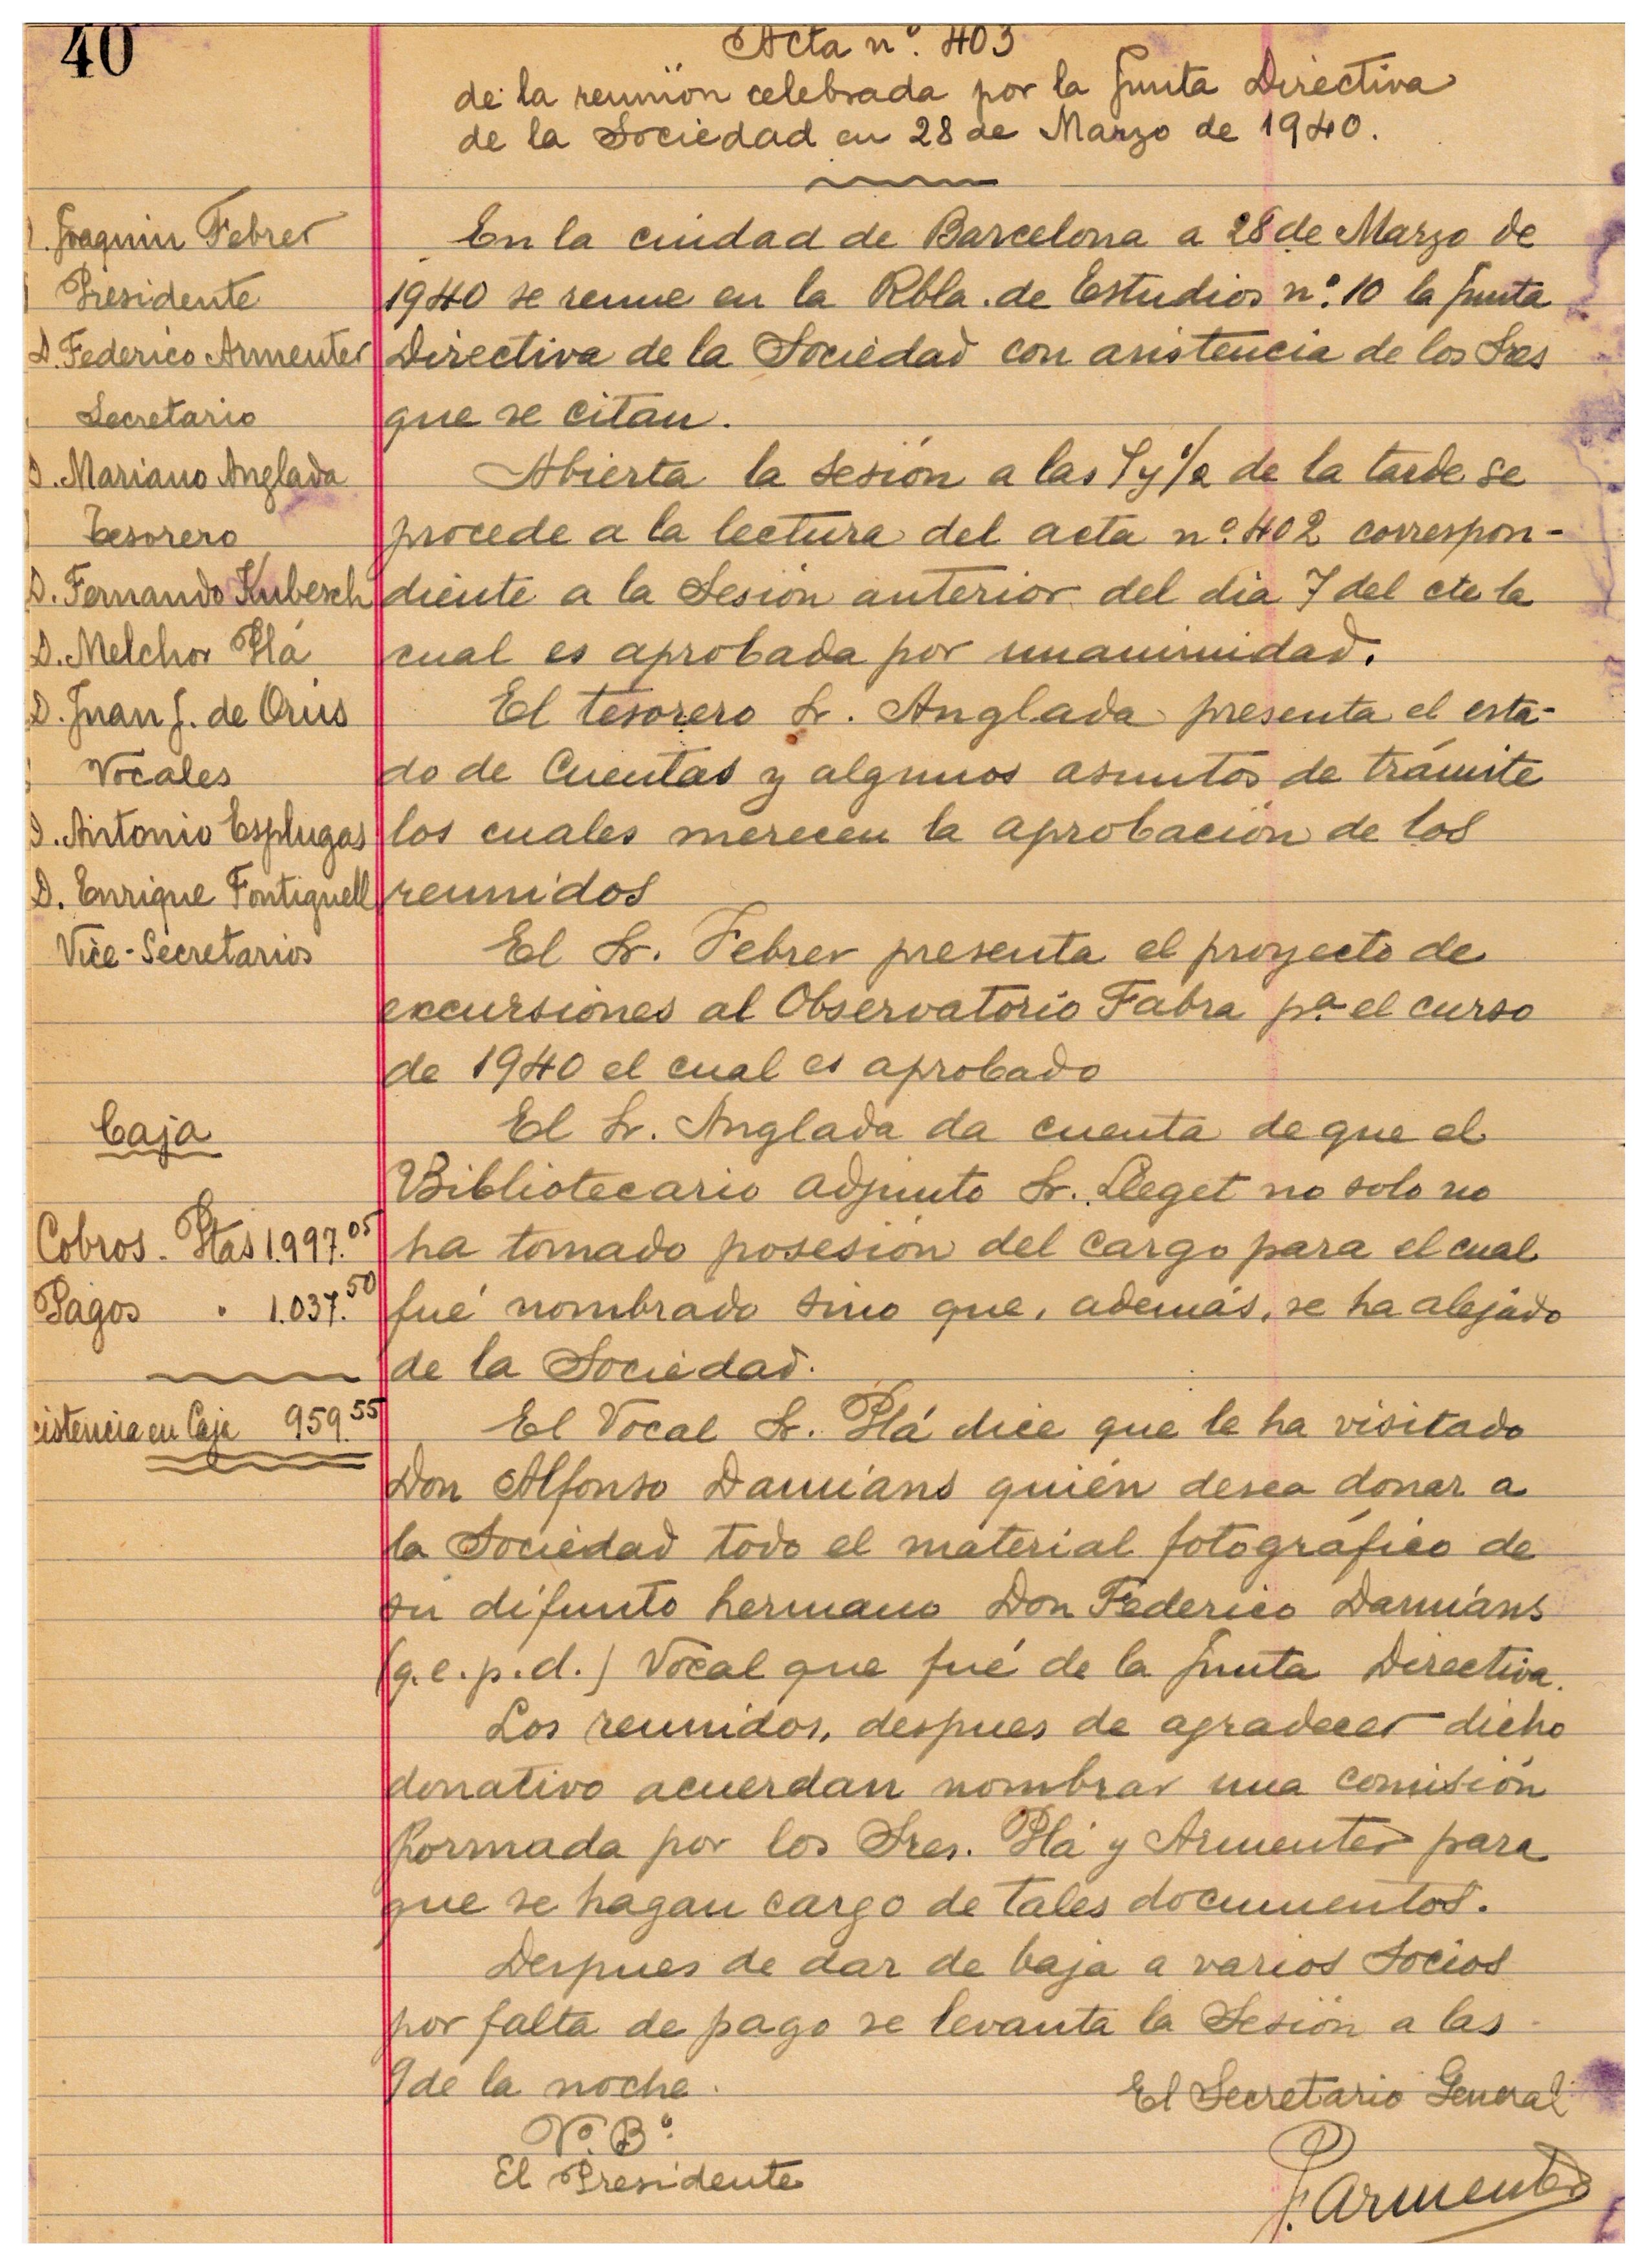 40
Acta nº. 403
de la reunión celebrada por la Junta Directiva
de la Sociedad en 28 de Marzo de 1940.
D. Joaquin Febrer
Presidente
D. Federico Armenter
Secretario
D. Mariano Anglada
Tesorero
D. Fernando Kubersch
D. Melchor Plá
D. Juan J. de Orús
Vocales
D. Antonio Esplugas
D. Enrique Fontiguell
Vice-Secretarios
En la ciudad de Barcelona a 28 de Marzo de
1940 se reune en la Rbla. de Estudios nº. 10 la Junta
Directiva de la Sociedad con asistencia de los Sres
que se citan.
Abierta la sesión a las 7 y 1/2 de la tarde se
procede a la lectura del acta nº. 402 correspon-
diente a la Sesión anterior del dia 7 del cte la
cual es aprobada por unanimidad.
El tesorero Sr. Anglada presenta el esta-
do de Cuentas y algunos asuntos de trámite
los cuales merecen la aprobación de los
reunidos
El Sr. Febrer presenta el proyecto de
excursiones al Observatorio Fabra pª. el curso
de 1940 el cual es aprobado
El Sr. Anglada da cuenta de que el
Bibliotecario adjunto Sr. Lleget no solo no
ha tomado posesión del cargo para el cual
fué nombrado sino que, además, se ha alejado
de la Sociedad.
Caja
Cobros. Ptas 1.997.05
Pagos " 1.037.50
xistencia en Caja 959.55
El Vocal Sr. Plá dice que le ha visitado
Don Alfonso Damians quién desea donar a
la Sociedad todo el material fotográfico de
su difunto hermano Don Federico Damiáns
(q.e.p.d.) Vocal que fué de la Junta Directiva.
Los reunidos, despues de agradecer dicho
donativo acuerdan nombrar una comisión
formada por los Sres. Plá y Armenter para
que se hagan cargo de tales documentos.
Despues de dar de baja a varios socios
por falta de pago se levanta la Sesión a las
9 de la noche.
El Secretario General
Vº. Bº.
El Presidente
F. Armenter